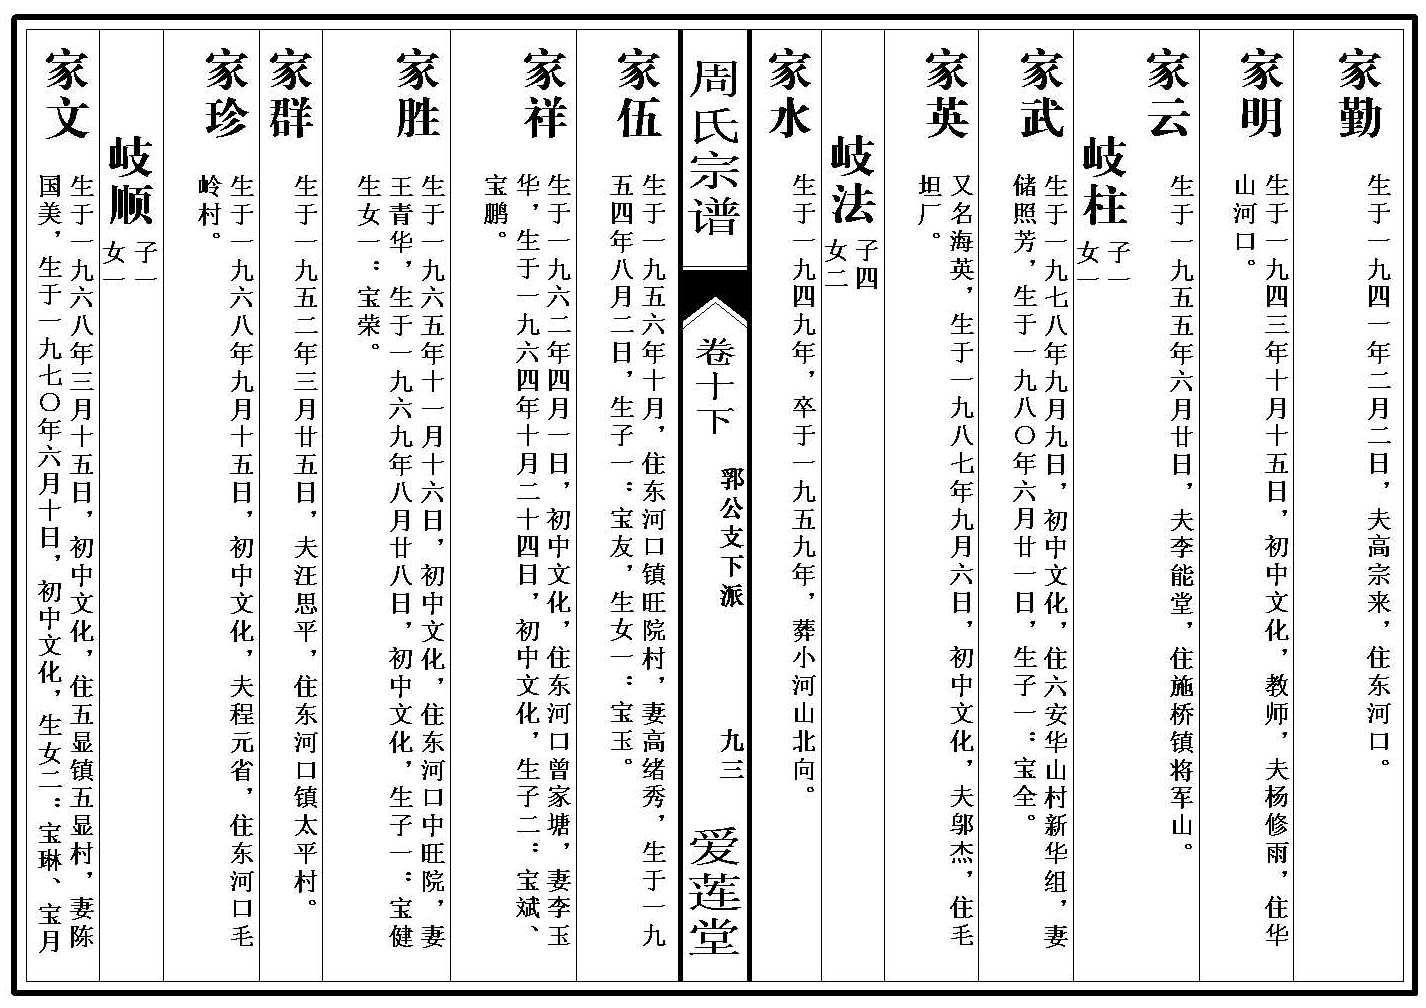 家勤
生于一九四一年二月二日，夫高宗来，住东河口。
家明
生于一九四三年十月十五日，初中文化，教师，夫杨修雨，住华
山河口。
家云
生于一九五五年六月廿日，夫李能堂，住施桥镇将军山。
岐柱
子一
女一
家武
生于一九七八年九月九日，初中文化，住六安华山村新华组，妻
储照芳，生于一九八〇年六月廿一日，生子一：宝全。
家英
又名海英，生于一九八七年九月六日，初中文化，夫邬杰，住毛
坦厂。
岐法
子四
女二
家水
生于一九四九年，卒于一九五九年，葬小河山北向。
周氏宗谱
卷十下
郭公支下派
九三
爱莲堂
家伍
生于一九五六年十月，住东河口镇旺院村，妻高绪秀，生于一九
五四年八月二日，生子一：宝友，生女一：宝玉。
家祥
生于一九六二年四月一日，初中文化，住东河口曾家塘，妻李玉
华，生于一九六四年十月二十四日，初中文化，生子二：宝斌、
宝鹏。
家胜
生于一九六五年十一月十六日，初中文化，住东河口中旺院，妻
王青华，生于一九六九年八月廿八日，初中文化，生子一：宝健
生女一：宝荣。
家群
生于一九五二年三月廿五日，夫汪思平，住东河口镇太平村。
家珍
生于一九六八年九月十五日，初中文化，夫程元省，住东河口毛
岭村。
岐顺
子一
女一
家文
生于一九六八年三月十五日，初中文化，住五显镇五显村，妻陈
国美，生于一九七〇年六月十日，初中文化，生女二：宝琳、宝月